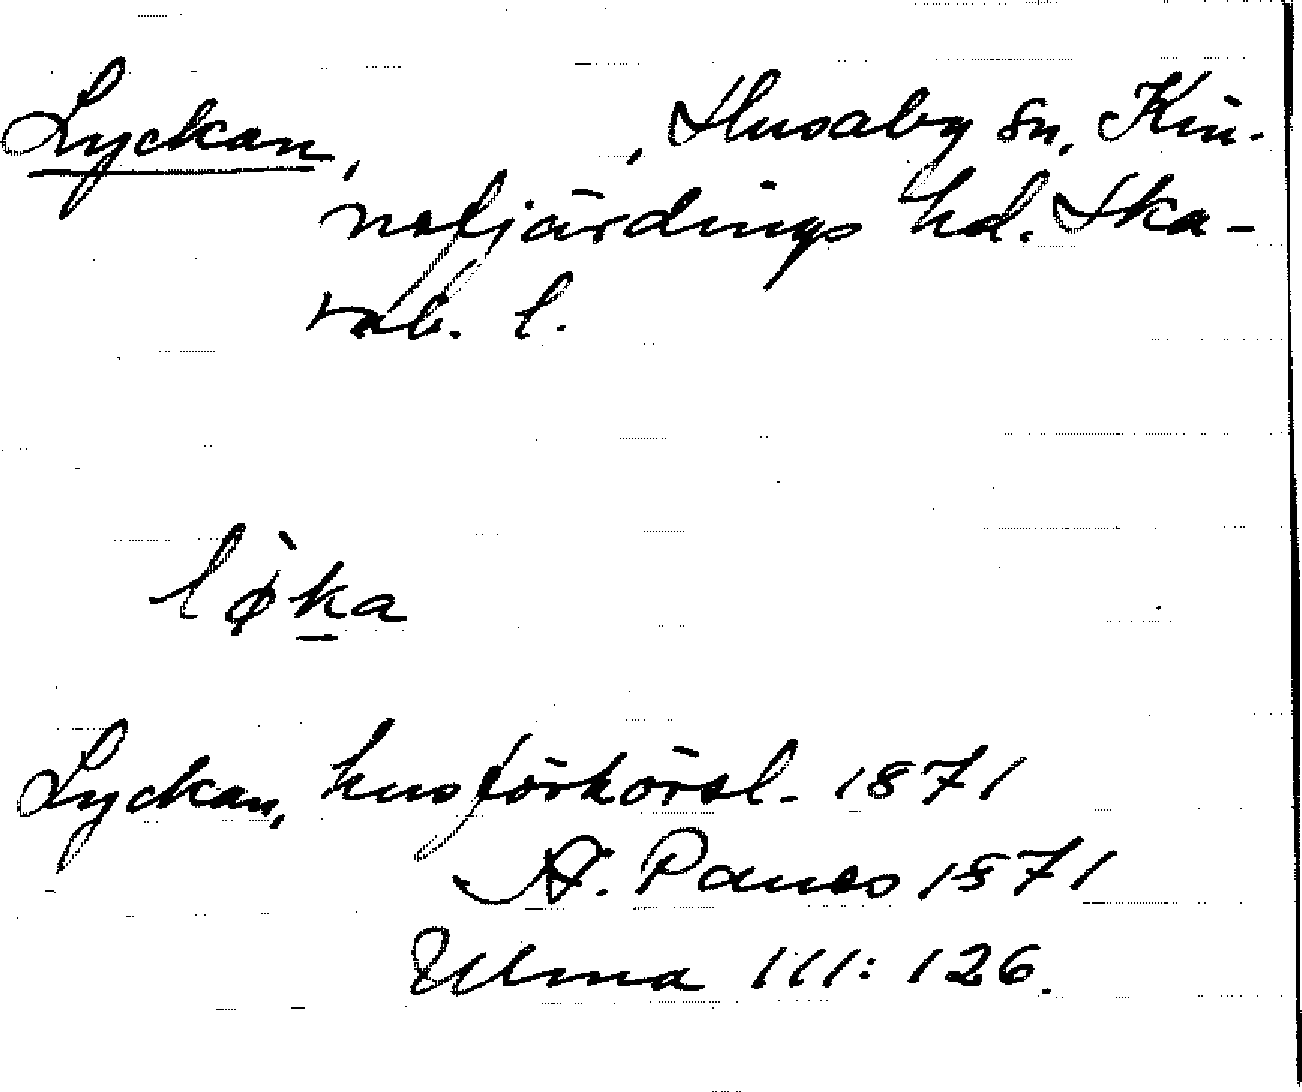 Lyckan, , Husaby sn, Kin-
nefjärdings hd. Ska-
rab. l.
lø̀ka
Lyckan, husförhörsl. 1871
A. Panes 1871
Ulma 111: 126.